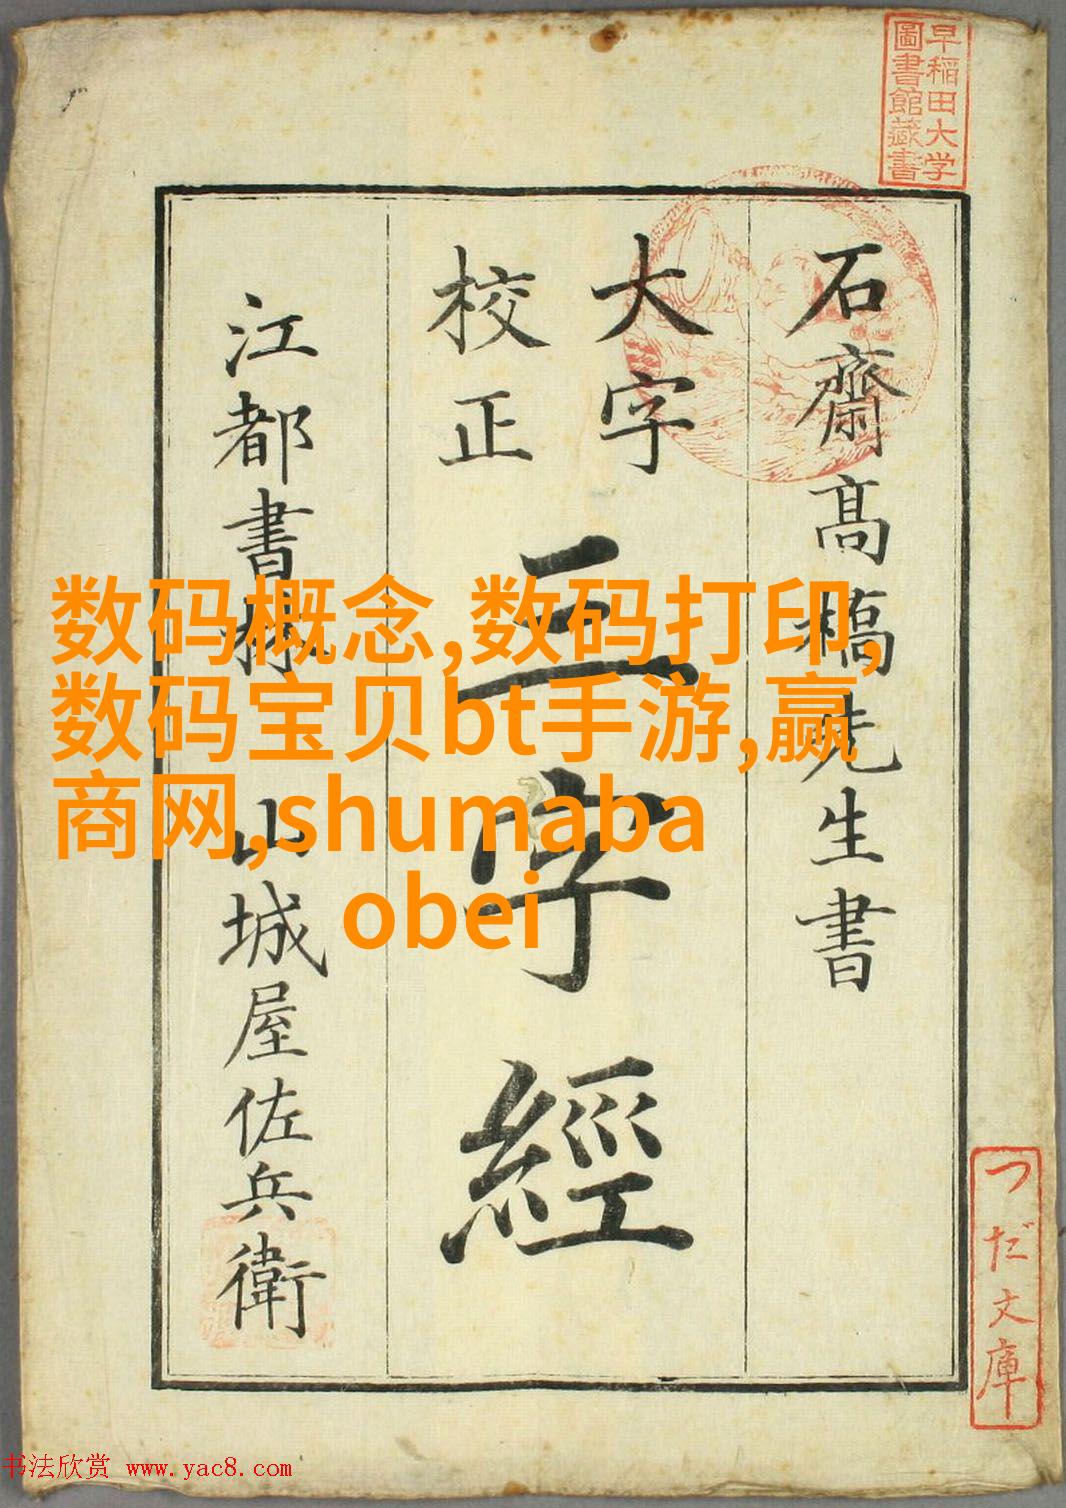 早稲田大学
圖書館藏書
石齋高橋先生書
大字
校正
三字經
江都書林 山城屋佐兵衛
数码概念,数码打印,
数码宝贝bt手游,赢
商网,shumaba
obei
つだ文庫
书法欣赏 www.yac8.com